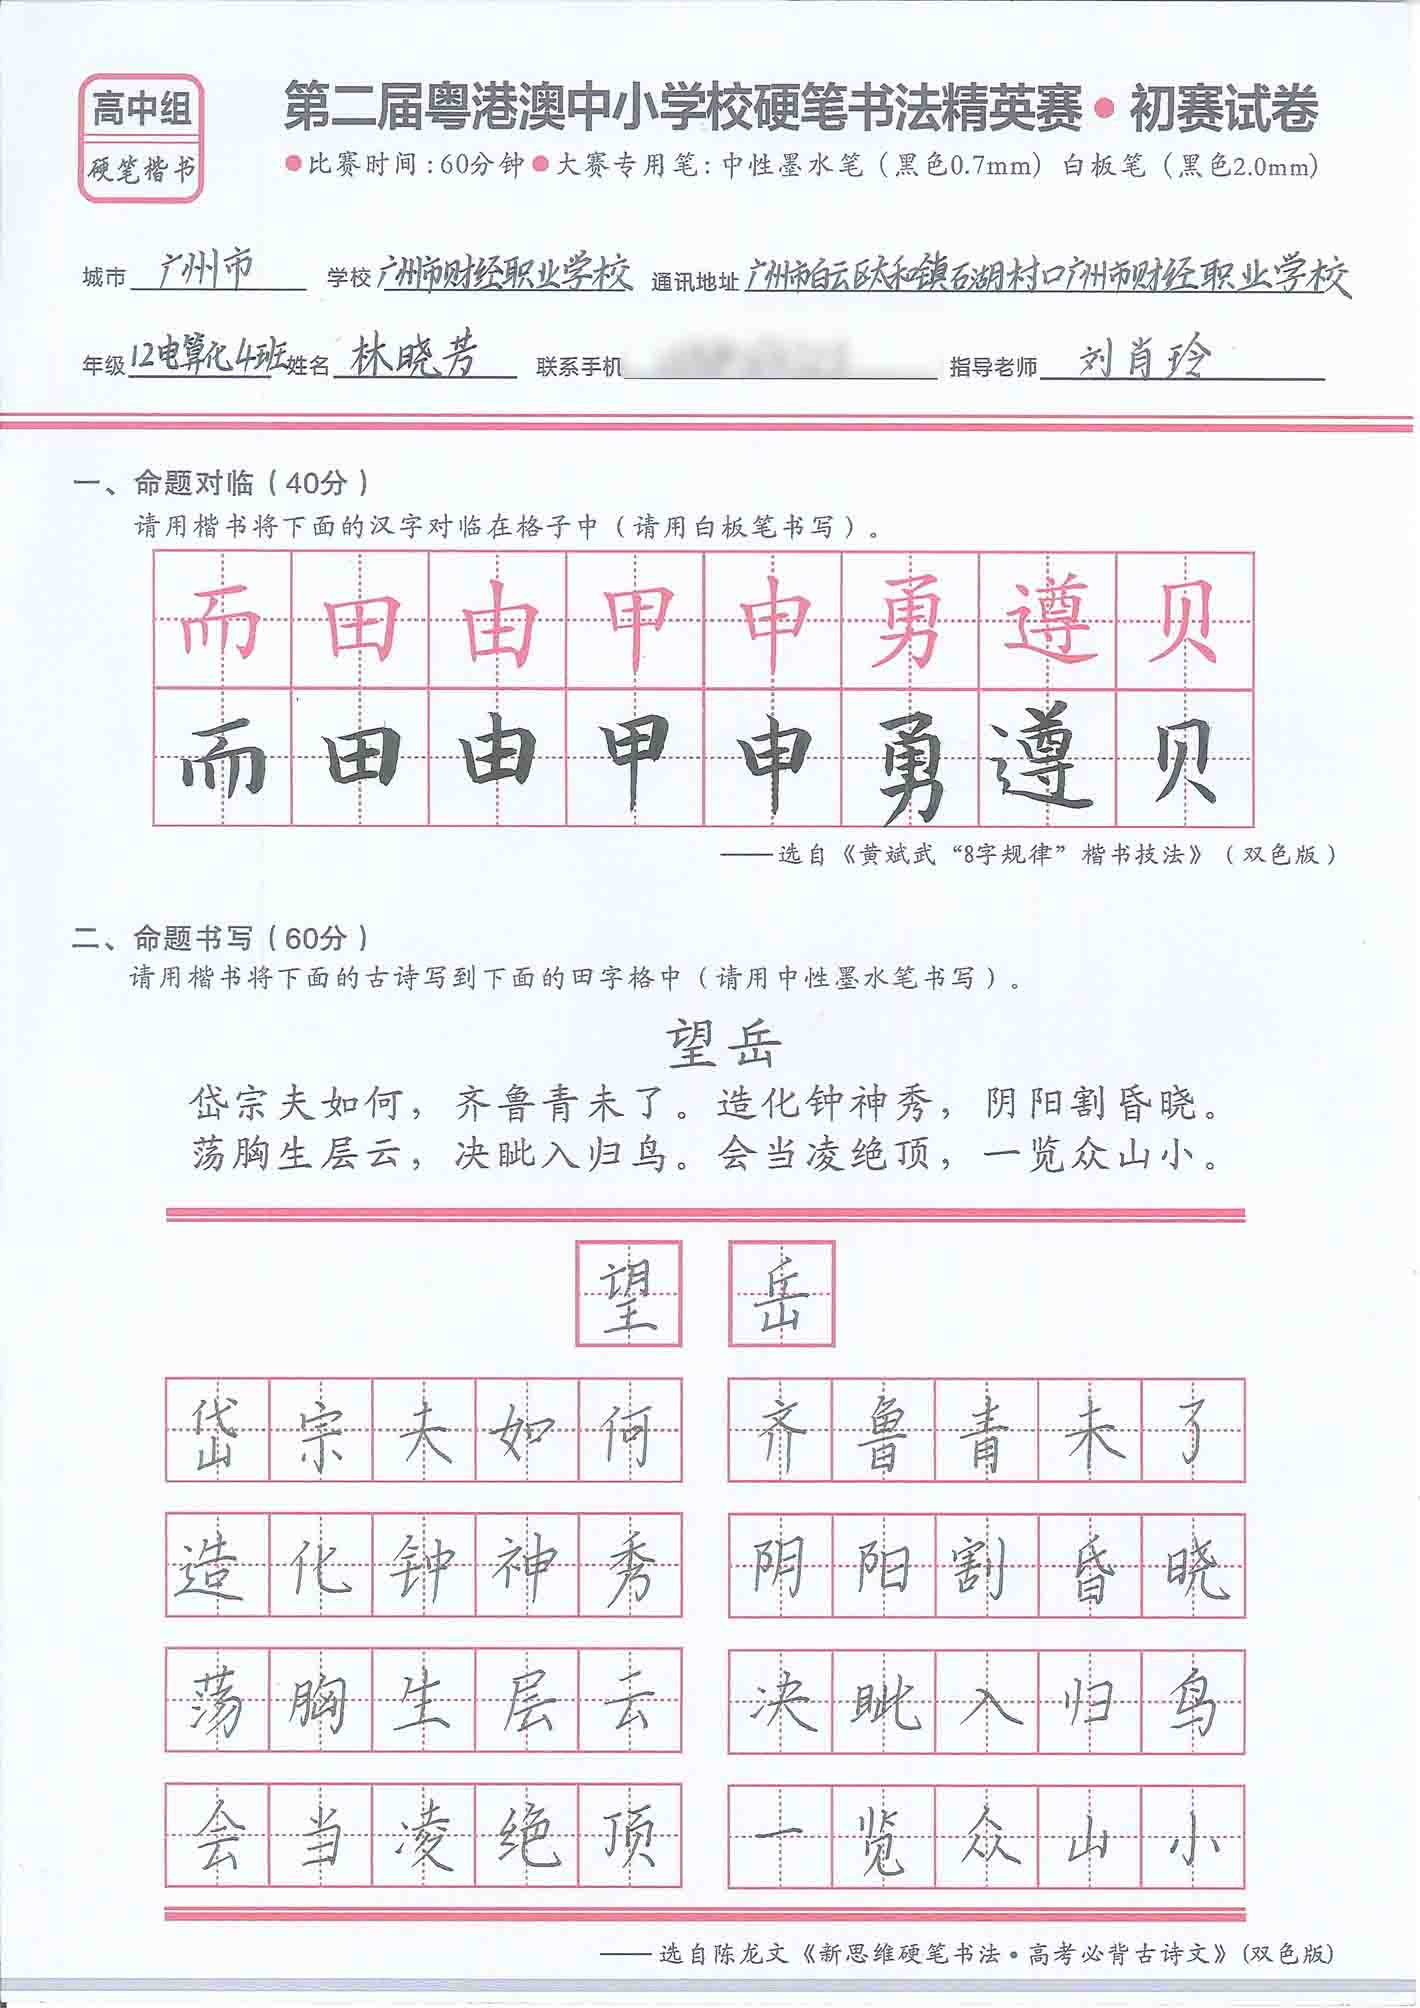 高中组
硬笔楷书
第二届粤港澳中小学校硬笔书法精英赛•初赛试卷
●比赛时间:60分钟●大赛专用笔:中性墨水笔(黑色0.7mm)白板笔(黑色2.0mm)
城市 广州市 学校 广州市财经职业学校 通讯地址 广州市白云区太和镇石湖村口广州市财经职业学校
年级 12电算化4班 姓名 林晓芳 联系手机 指导老师 刘肖玲
一、命题对临(40分)
请用楷书将下面的汉字对临在格子中(请用白板笔书写)。
而田由甲申勇遵贝
而田由甲申勇遵贝
——选自《黄斌武“8字规律”楷书技法》(双色版)
二、命题书写(60分)
请用楷书将下面的古诗写到下面的田字格中(请用中性墨水笔书写)。
望岳
岱宗夫如何，齐鲁青未了。造化钟神秀，阴阳割昏晓。
荡胸生层云，决眦入归鸟。会当凌绝顶，一览众山小。
望岳
岱宗夫如何 齐鲁青未了
造化钟神秀 阴阳割昏晓
荡胸生层云 决眦入归鸟
会当凌绝顶 一览众山小
——选自陈龙文《新思维硬笔书法·高考必背古诗文》(双色版)